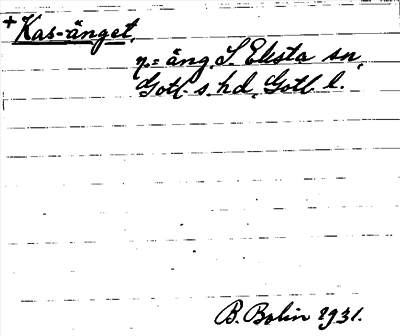 + Kas-änget,
n = äng, S. Eksta sn,
Gotl. s. hd, Gotl. l.
B. Bolin 1931.